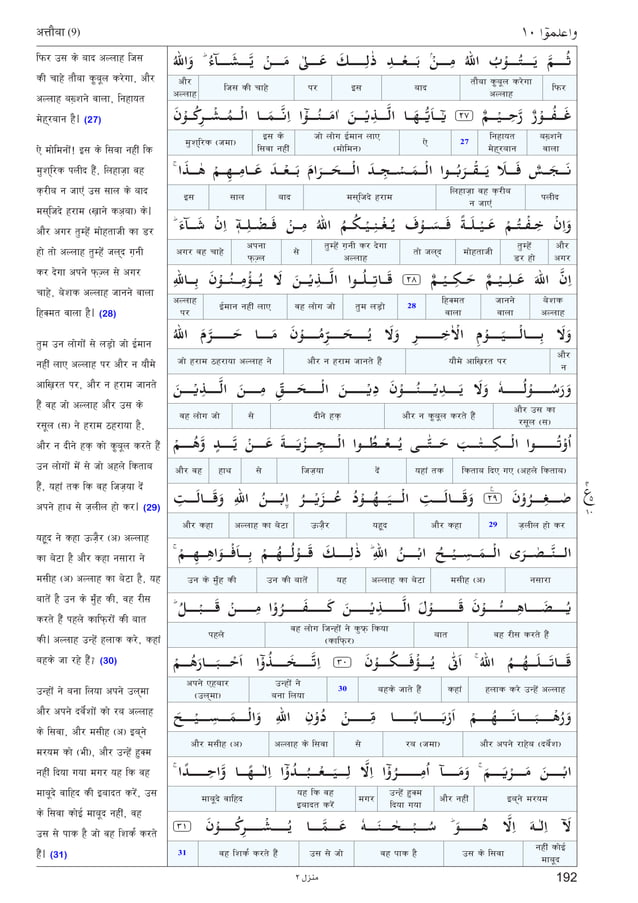 अत्तौबा (9)
واعلموٓا ١٠
फिर उस के बाद अल्लाह जिस
की चाहे तौबा कुबूल करेगा, और
अल्लाह बख़्शने वाला, निहायत
मेहरबान है। (27)
ऐ मोमिनों! इस के सिवा नहीं कि
मुश्रिक पलीद हैं, लिहाज़ा वह
क़रीब न जाएं उस साल के बाद
मस्जिदे हराम (ख़ाने कअ़बा) के।
और अगर तुम्हें मोहताजी का डर
हो तो अल्लाह तुम्हें जल्द ग़नी
कर देगा अपने फज़्ल से अगर
चाहे, बेशक अल्लाह जानने वाला
हिक्मत वाला है। (28)
तुम उन लोगों से लड़ो जो ईमान
नहीं लाए अल्लाह पर और न यौमे
आख़िरत पर, और न हराम जानते
हैं वह जो अल्लाह और उस के
रसूल (स) ने हराम ठहराया है,
और न दीने हक़ को कुबूल करते हैं
उन लोगों में से जो अहले किताब
हैं, यहां तक कि वह जिज़या दें
अपने हाथ से ज़लील हो कर। (29)
यहूद ने कहा ऊज़ैर (अ) अल्लाह
का बेटा है और कहा नसारा ने
मसीह (अ) अल्लाह का बेटा है, यह
बातें है उन के मुँह की, वह रीस
करते हैं पहले काफ़िरों की बात
की। अल्लाह उन्हें हलाक करे, कहां
बहके जा रहे हैं? (30)
उन्हों ने बना लिया अपने उल्मा
और अपने दर्वेशों को रब अल्लाह
के सिवा, और मसीह (अ) इब्ने
मरयम को (भी), और उन्हें हुक्म
नहीं दिया गया मगर यह कि वह
माबूदे वाहिद की इबादत करें, उस
के सिवा कोई माबूद नहीं, वह
उस से पाक है जो वह शिर्क करते
हैं। (31)
ثُمَّ يَتُوْبُ اللهُ مِنْۢ بَعْدِ ذٰلِكَ عَلٰى مَنْ يَّشَآءُ ؕ وَاللهُ
और अल्लाह जिस की चाहे पर इस बाद तौबा कुबूल करेगा अल्लाह फिर
غَفُوْرٌ رَّحِيْمٌ ﴿٢٧﴾ يٰٓاَيُّهَا الَّذِيْنَ اٰمَنُوْٓا اِنَّمَا الْمُشْرِكُوْنَ
मुश्रिक (जमा) इस के सिवा नहीं जो लोग ईमान लाए (मोमिन) ऐ 27 निहायत मेहरबान बख़्शने वाला
نَجَسٌ فَلَا يَقْرَبُوا الْمَسْجِدَ الْحَرَامَ بَعْدَ عَامِهِمْ هٰذَا ۚ
इस साल बाद मस्जिदे हराम लिहाज़ा वह क़रीब न जाएं पलीद
وَاِنْ خِفْتُمْ عَيْلَةً فَسَوْفَ يُغْنِيْكُمُ اللهُ مِنْ فَضْلِهٖٓ اِنْ شَآءَ ؕ
अगर वह चाहे अपना फज़्ल से तुम्हें ग़नी कर देगा अल्लाह तो जल्द मोहताजी तुम्हें डर हो और अगर
اِنَّ اللهَ عَلِيْمٌ حَكِيْمٌ ﴿٢٨﴾ قَاتِلُوا الَّذِيْنَ لَا يُؤْمِنُوْنَ بِاللهِ
अल्लाह पर ईमान नहीं लाए वह लोग जो तुम लड़ो 28 हिक्मत वाला जानने वाला बेशक अल्लाह
وَلَا بِالْيَوْمِ الْاٰخِرِ وَلَا يُحَرِّمُوْنَ مَا حَرَّمَ اللهُ
जो हराम ठहराया अल्लाह ने और न हराम जानते हैं यौमे आख़िरत पर और न
وَرَسُوْلُهٗ وَلَا يَدِيْنُوْنَ دِيْنَ الْحَقِّ مِنَ الَّذِيْنَ
वह लोग जो से दीने हक़ और न कुबूल करते हैं और उस का रसूल (स)
اُوْتُوا الْكِتٰبَ حَتّٰى يُعْطُوا الْجِزْيَةَ عَنْ يَّدٍ وَّهُمْ
और वह हाथ से जिज़या दें यहां तक किताब दिए गए (अहले किताब)
صٰغِرُوْنَ ﴿٢٩﴾ وَقَالَتِ الْيَهُوْدُ عُزَيْرُ ۨابْنُ اللهِ وَقَالَتِ
और कहा अल्लाह का बेटा ऊज़ैर यहूद और कहा 29 ज़लील हो कर
النَّصٰرَى الْمَسِيْحُ ابْنُ اللهِ ؕ ذٰلِكَ قَوْلُهُمْ بِاَفْوَاهِهِمْ ۚ
उन के मुँह की उन की बातें यह अल्लाह का बेटा मसीह (अ) नसारा
يُضَاهِـُٔوْنَ قَوْلَ الَّذِيْنَ كَفَرُوْا مِنْ قَبْلُ ؕ
पहले वह लोग जिन्हों ने कुफ़्र किया (काफ़िर) बात वह रीस करते हैं
قَاتَلَهُمُ اللهُ ۚ اَنّٰى يُؤْفَكُوْنَ ﴿٣٠﴾ اِتَّخَذُوْٓا اَحْبَارَهُمْ
अपने एहबार (उल्मा) उन्हों ने बना लिया 30 बहके जाते हैं कहां हलाक करे उन्हें अल्लाह
وَرُهْبَانَهُمْ اَرْبَابًا مِّنْ دُوْنِ اللهِ وَالْمَسِيْحَ
और मसीह (अ) अल्लाह के सिवा से रब (जमा) और अपने राहेब (दर्वेश)
ابْنَ مَرْيَمَ ۚ وَمَآ اُمِرُوْٓا اِلَّا لِيَعْبُدُوْٓا اِلٰـهًا وَّاحِدًا ۚ
माबूदे वाहिद यह कि वह इबादत करें मगर उन्हें हुक्म दिया गया और नहीं इब्ने मरयम
لَآ اِلٰهَ اِلَّا هُوَ ؕ سُبْحٰنَهٗ عَمَّا يُشْرِكُوْنَ ﴿٣١﴾
31 वह शिर्क करते हैं उस से जो वह पाक है उस के सिवा नहीं कोई माबूद
منزل ٢
192